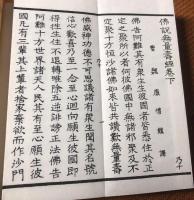 佛說無量壽經卷下
曹魏康僧鎧譯
佛告阿難其有衆生生彼國者皆悉住於正
定之聚所以者何彼佛國中無諸邪聚及不
定之聚十方恒沙諸佛如來皆共讚歎無量壽
佛威神功德不可思議諸有衆生聞其名號
信心歡喜乃至一念至心迴向願生彼國即
得往生住不退轉唯除五逆誹謗正法佛告
阿難十方世界諸天人民其有至心願生彼
國凡有三輩其上輩者捨家棄欲而作沙門